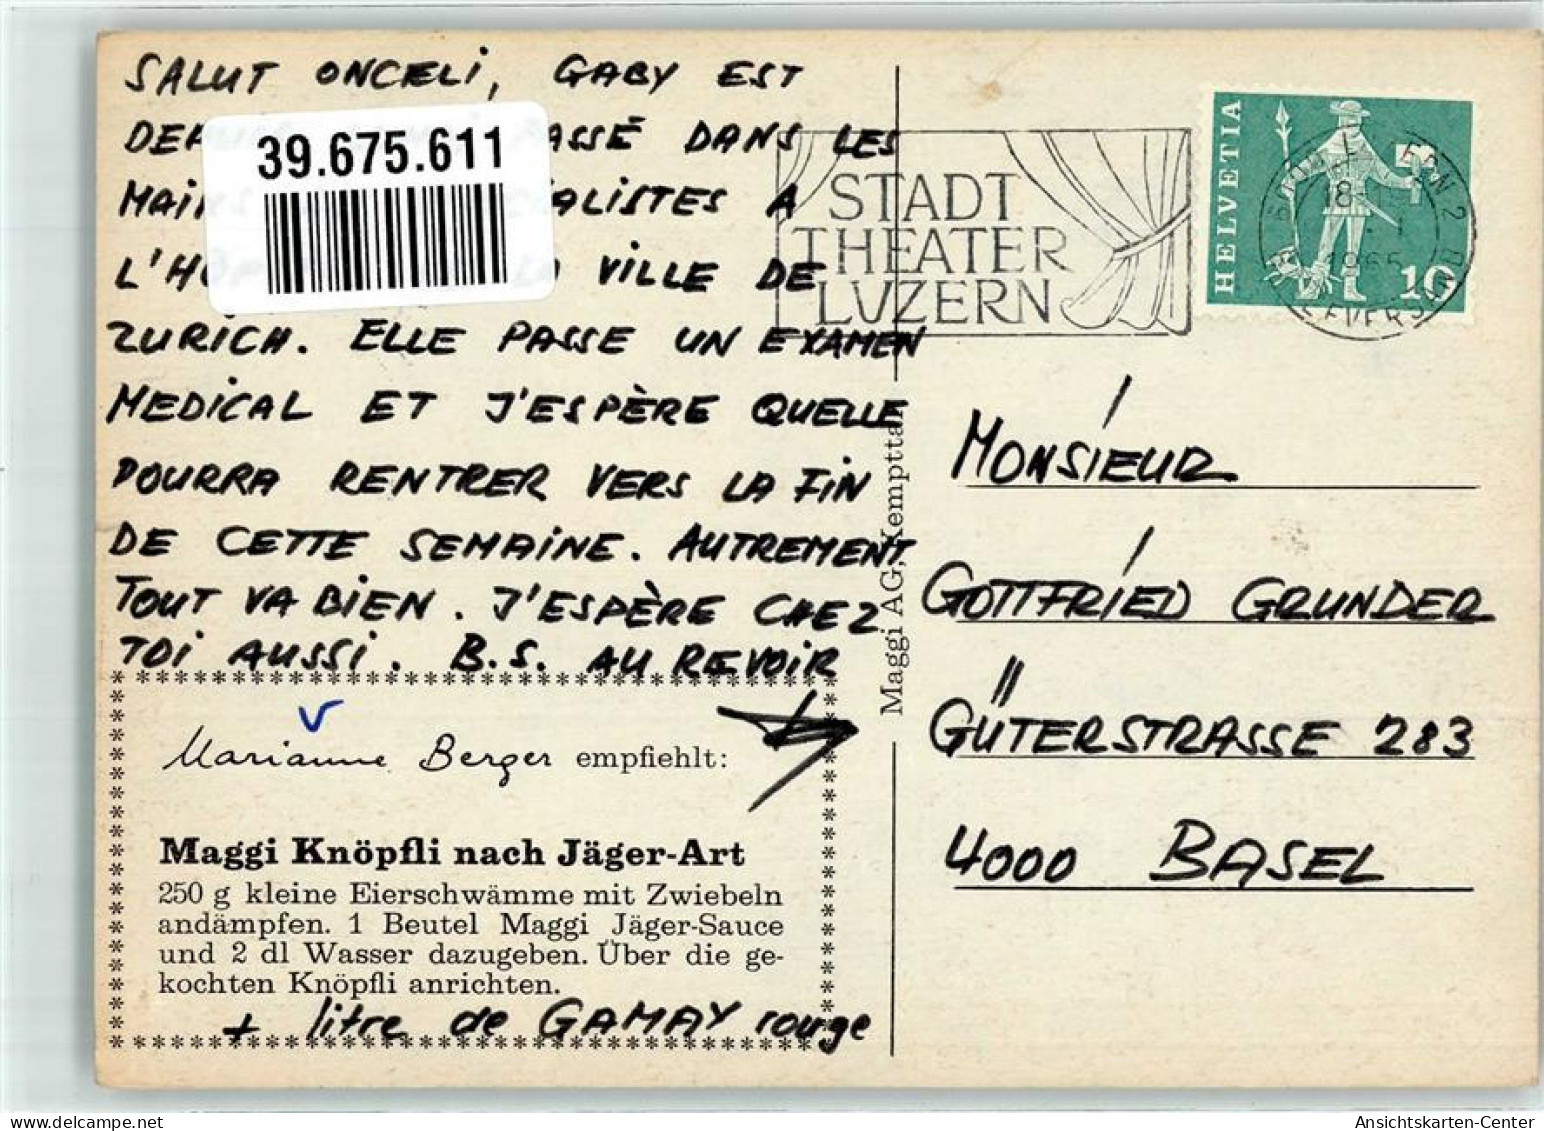 SALUT ONCELI, GABY EST
PASSÉ DANS LES
MAINS A
L'HÔP VILLE DE
ZURICH. ELLE PASSE UN EXAMEN
MEDICAL ET J'ESPÈRE QUELLE
POURRA RENTRER VERS LA FIN
DE CETTE SEMAINE. AUTREMENT
TOUT VA BIEN. J'ESPÈRE CHEZ
TOI AUSSI. B.S. AU REVOIR
39.675.611
Marianne Berger empfiehlt:
Maggi Knöpfli nach Jäger-Art
250 g kleine Eierschwämme mit Zwiebeln
andämpfen. 1 Beutel Maggi Jäger-Sauce
und 2 dl Wasser dazugeben. Über die ge-
kochten Knöpfli anrichten.
+ litre de GAMAY rouge
Maggi AG, Kempttal
STADT
THEATER
LUZERN
HELVETIA
10
1965
MONSIEUR
GOTTFRIED GRUNDER
GÜTERSTRASSE 283
4000 BASEL
www.delcampe.net
Ansichtskarten-Center